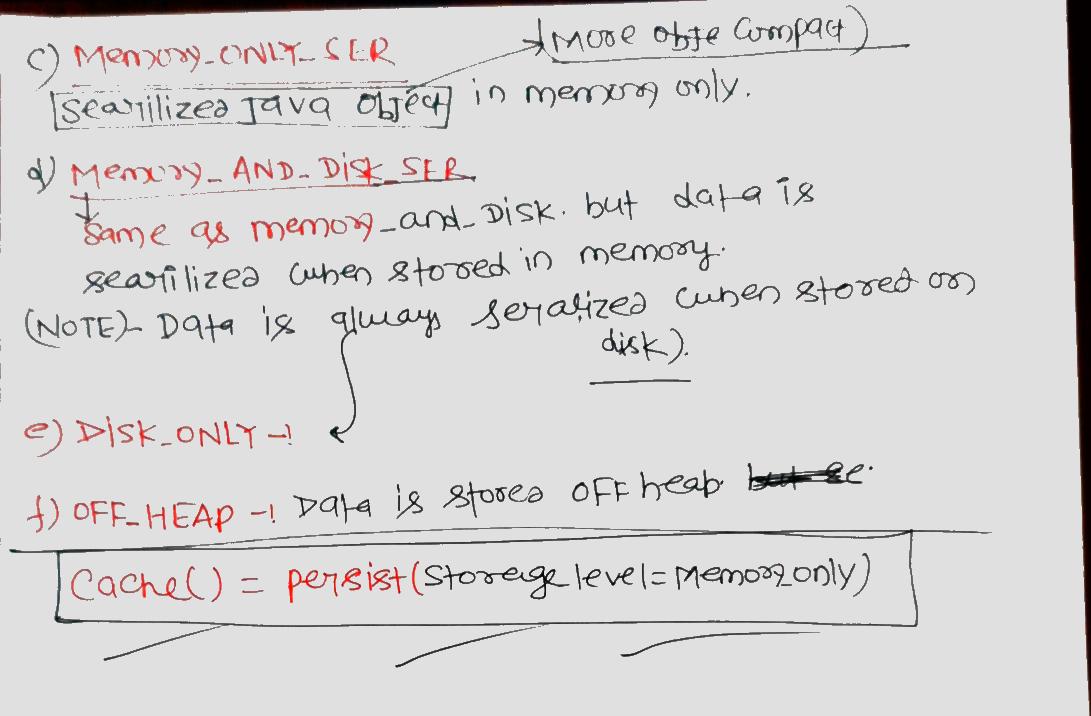 c) Memory_ONLY_SER → More objte Compact)
Searilized Java Object in memory only.
d) Memory_AND_Disk_SER
Same as memory_and_Disk. but data is
searilized when stored in memory.
(NOTE)- Data is always seralized when stored on
disk).
e) DISK_ONLY -!
f) OFF_HEAP -! Data is stored OFF heap
Cache() = persist(Storage level = Memory only)